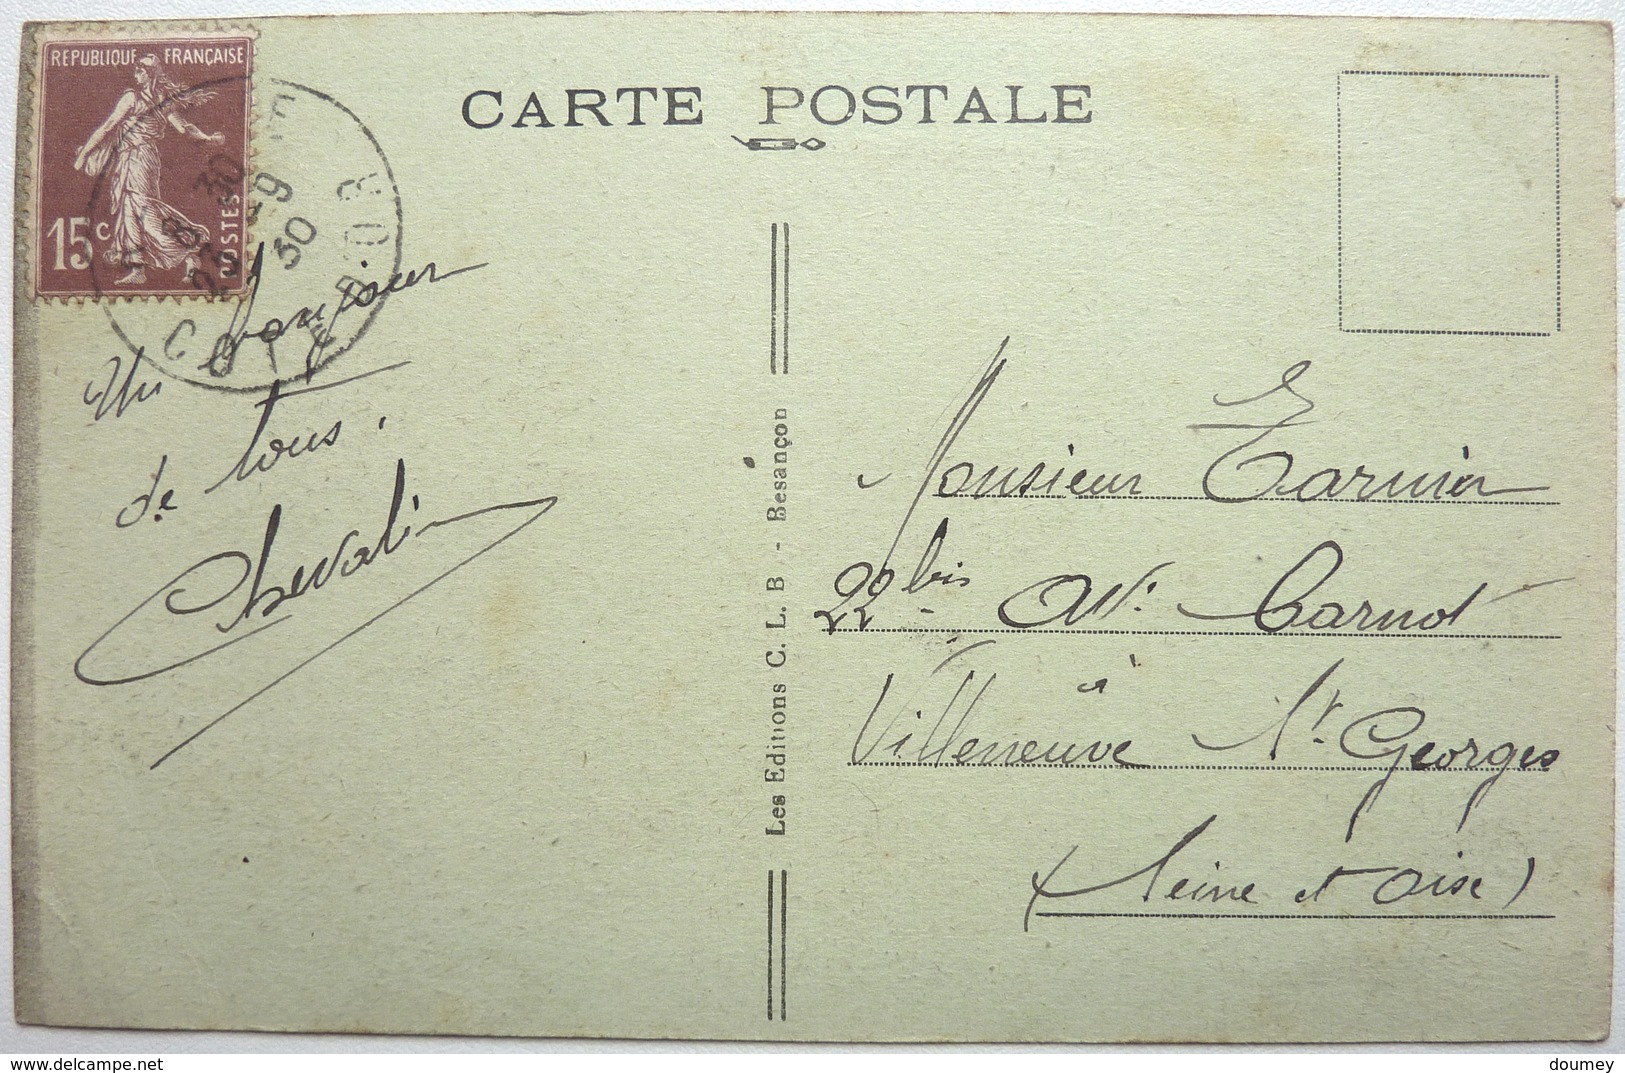 REPUBLIQUE FRANÇAISE
15c
POSTES
CARTE POSTALE
8 30
23 - 9
30
COTE D'OR
Un bonjour
de tous.
Chevalier
Les Editions C. L. B - Besançon
Monsieur Tarnier
22 bis Av. Carnot
à
Villeneuve St. Georges
(Seine et Oise)
delcampe.net
doumey